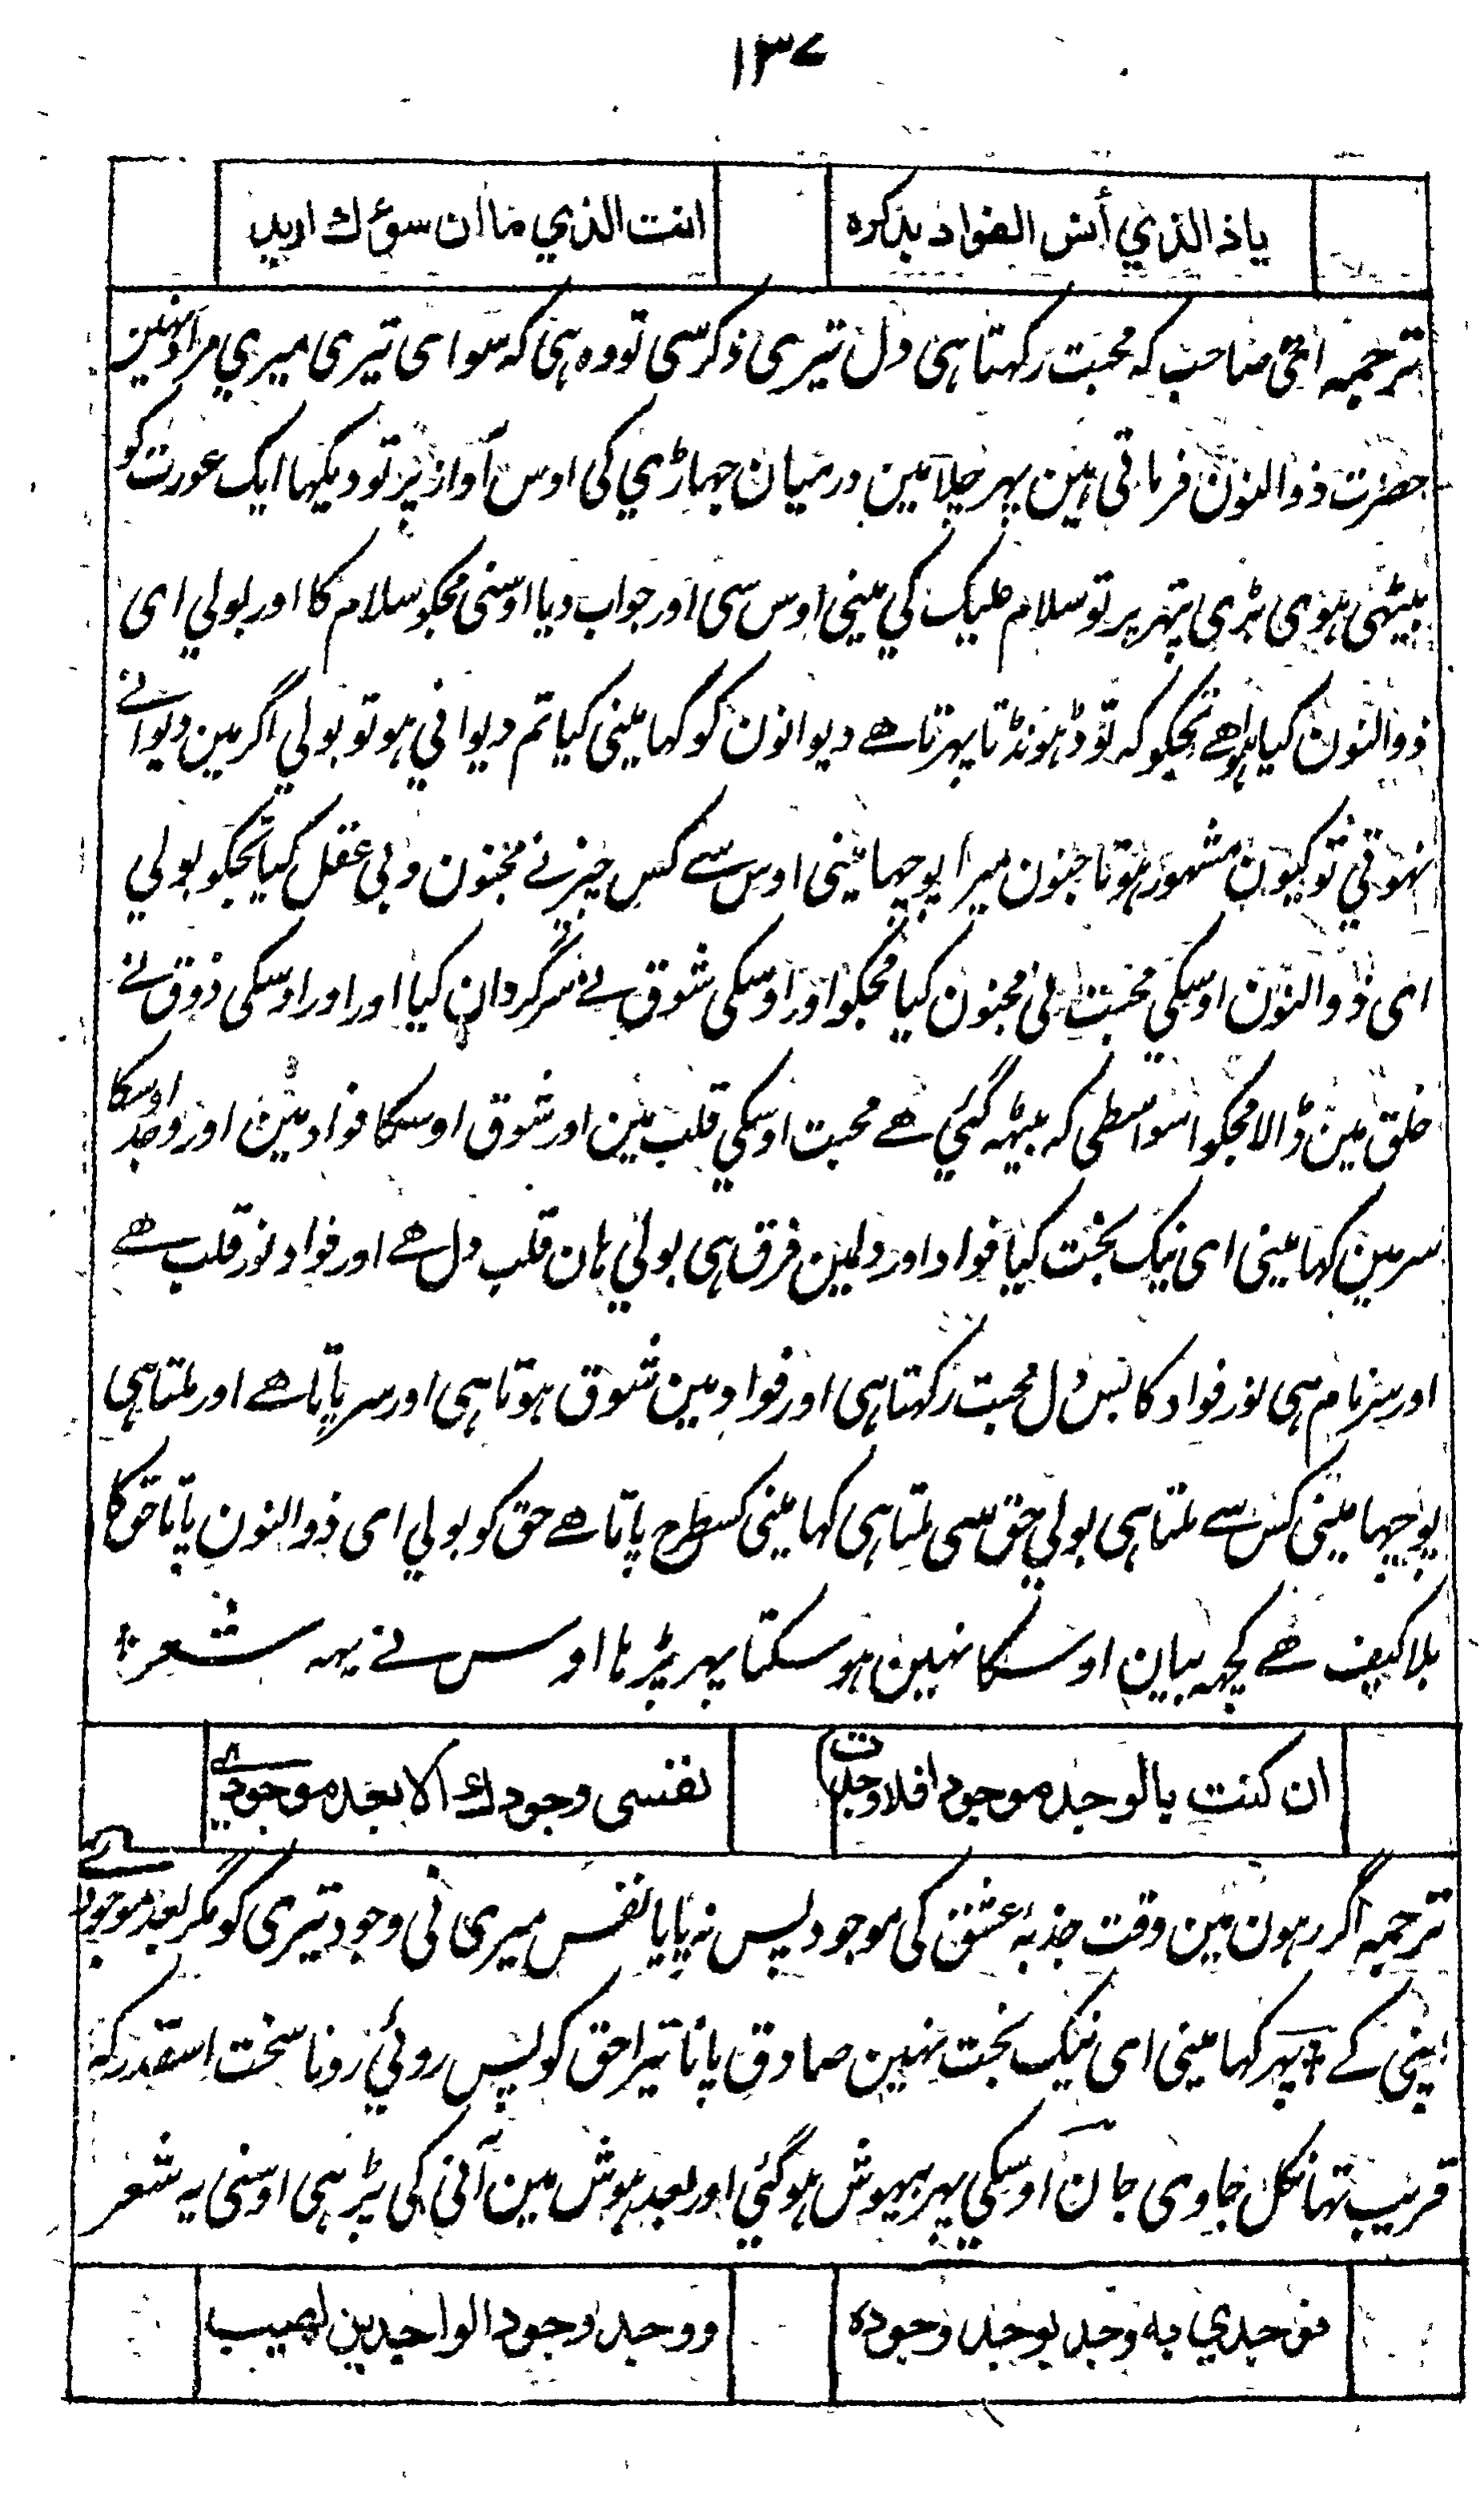 ۱۳۷
یاذ الذي أنس الفواد بذكره انت الذي ما ان سوٰك اريد
ترجمہ ای صاحب کہ محبت رکہتا ہی دل تیری ذکر سی تو وہ ہی کہ سوای تیری میری مراد نہین
حضرت ذوالنون فرماتی ہین پہر چلا مین درمیان جہاڑی کی اوس آواز پر تو دیکہا ایک عورت کو
بیٹہی ہوی بڑی پتہر پر تو سلام علیک کی مینی اوس سی اور جواب دیا اوسنی مجکو سلام کا اور بولی ای
ذوالنون کیا ہوا ہے تجکو کہ تو ڈہونڈتا پہرتا ہے دیوانون کو کہا مینی کیا تم دیوانی ہو تو بولی اگر مین دیوانے
نہوتی تو کیون مشہور ہوتا جنون میرا پوچہا مینی اوس سے کس چیز نے مجنون و بی عقل کیا تجکو بولی
ای ذوالنون اوسکی محبت نی مجنون کیا مجکو اور اوسکی شوق نے سرگردان کیا اور اور اوسکی ذوق نے
خلق مین ڈالا مجکو اسواسطی کہ بیٹہہ گئی ہے محبت اوسکی قلب مین اور شوق اوسکا فواد مین اور وجد اوسکا
سر مین کہا مینی ای نیک بخت کیا فواد اور دلمین فرق ہی بولی ہان قلب دل ہے اور فواد نور قلب ہے
اور سر نام ہی نور فواد کا بس دل محبت رکہتا ہی اور فواد مین شوق ہوتا ہی اور سر پاتا ہے اور ملتا ہی
پوچہا مینی کس سے ملتا ہی بولی حق سی ملتا ہی کہا مینی کسطرح پاتا ہے حق کو بولی ای ذوالنون پاتا حق کا
بلا کیف ہے کچہہ بیان اوسکا نہین ہوسکتا پہر پڑہا اوس نے یہہ شعر
ان كنت بالوجد موجودا فلا وجدت نفسی وجودك الا بعد موجودے
ترجمہ اگر رہون مین وقت جذبۂ عشق کی موجود پس نہ پایا نفس میری نی وجود تیری کو مگر بعد موجودے
اپنی کے پہر کہا مینی ای نیک بخت نہین صادق پانا تیرا حق کو پس روئی رونا سخت اسقدر کہ
قریب تہا نکل جاوی جان اوسکی پہر بیہوش ہوگئی اور بعد ہوش مین آنی کی پڑہی اوسنی یہ شعر
فوجدي به وجد بوجد وجوده ووجد وجود الواجدين لهيب